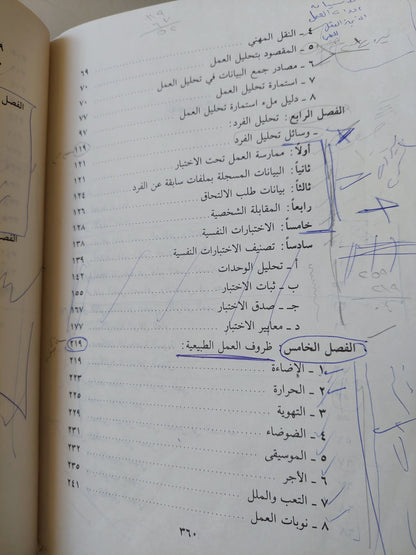 ٤ ـ النقل المهني
٥ ـ المقصود بتحليل العمل ٦٩
٦ ـ مصادر جمع البيانات في تحليل العمل ٧٠
٧ ـ استمارة تحليل العمل ٧٠
٨ ـ دليل ملء استمارة تحليل العمل ٧٧
الفصل الرابع: تحليل الفرد: ٩٧
ـ وسائل تحليل الفرد ١١٩
أولاً: ممارسة العمل تحت الاختبار ١٢١
ثانياً: البيانات المسجلة بملفات سابقة عن الفرد ١٢١
ثالثاً: بيانات طلب الالتحاق ١٢٤
رابعاً: المقابلة الشخصية ١٢٦
خامساً: الاختبارات النفسية ١٢٨
سادساً: تصنيف الاختبارات النفسية ١٣٨
أ ـ تحليل الوحدات ١٣٩
ب ـ ثبات الاختبار ١٤٢
جـ ـ صدق الاختبار ١٥٥
د ـ معايير الاختبار ٨٦٧
١٧٧
الفصل الخامس: ظروف العمل الطبيعية: ٢١٩
١ ـ الإضاءة ٢١٩
٢ ـ الحرارة ٢٢٣
٣ ـ التهوية ٢٢٥
٤ ـ الضوضاء ٢٢٩
٥ ـ الموسيقى ٢٣١
٦ ـ الأجر ٢٣٢
٧ ـ التعب والملل ٢٣٥
٨ ـ نوبات العمل ٢٤١
٣٦٠